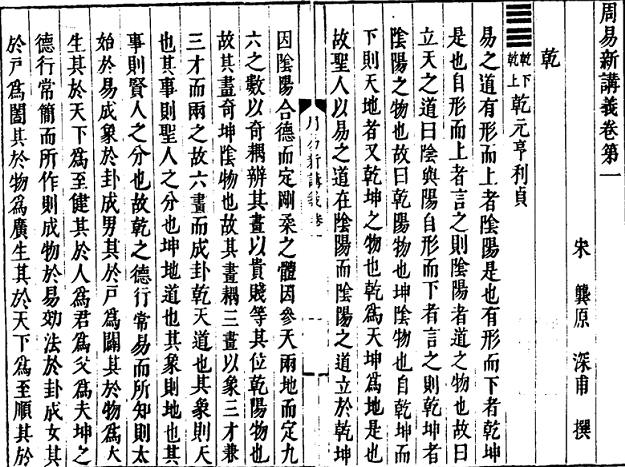 周易新講義卷第一
宋 龔原 深甫 撰
乾
乾下乾上 乾元亨利貞
易之道有形而上者陰陽是也有形而下者乾坤
是也自形而上者言之則陰陽者道之物也故曰
立天之道曰陰與陽自形而下者言之則乾坤者
陰陽之物也故曰乾陽物也坤陰物也自乾坤而
下則天地者又乾坤之物也乾為天坤為地是也
故聖人以易之道在陰陽而陰陽之道立於乾坤
周易新講義卷一
因陰陽合德而定剛柔之體因參天兩地而定九
六之數以奇耦辨其畫以貴賤等其位乾陽物也
故其畫奇坤陰物也故其畫耦三畫以象三才兼
三才而兩之故六畫而成卦乾天道也其象則天
也其事則聖人之分也坤地道也其象則地也其
事則賢人之分也故乾之德行常易而所知則太
始於易成象於卦成男其於戸為闢其於物為大
生其於天下為至健其於人為君為父為夫坤之
德行常簡而所作則成物於易効法於卦成女其
於戸為闔其於物為廣生其於天下為至順其於